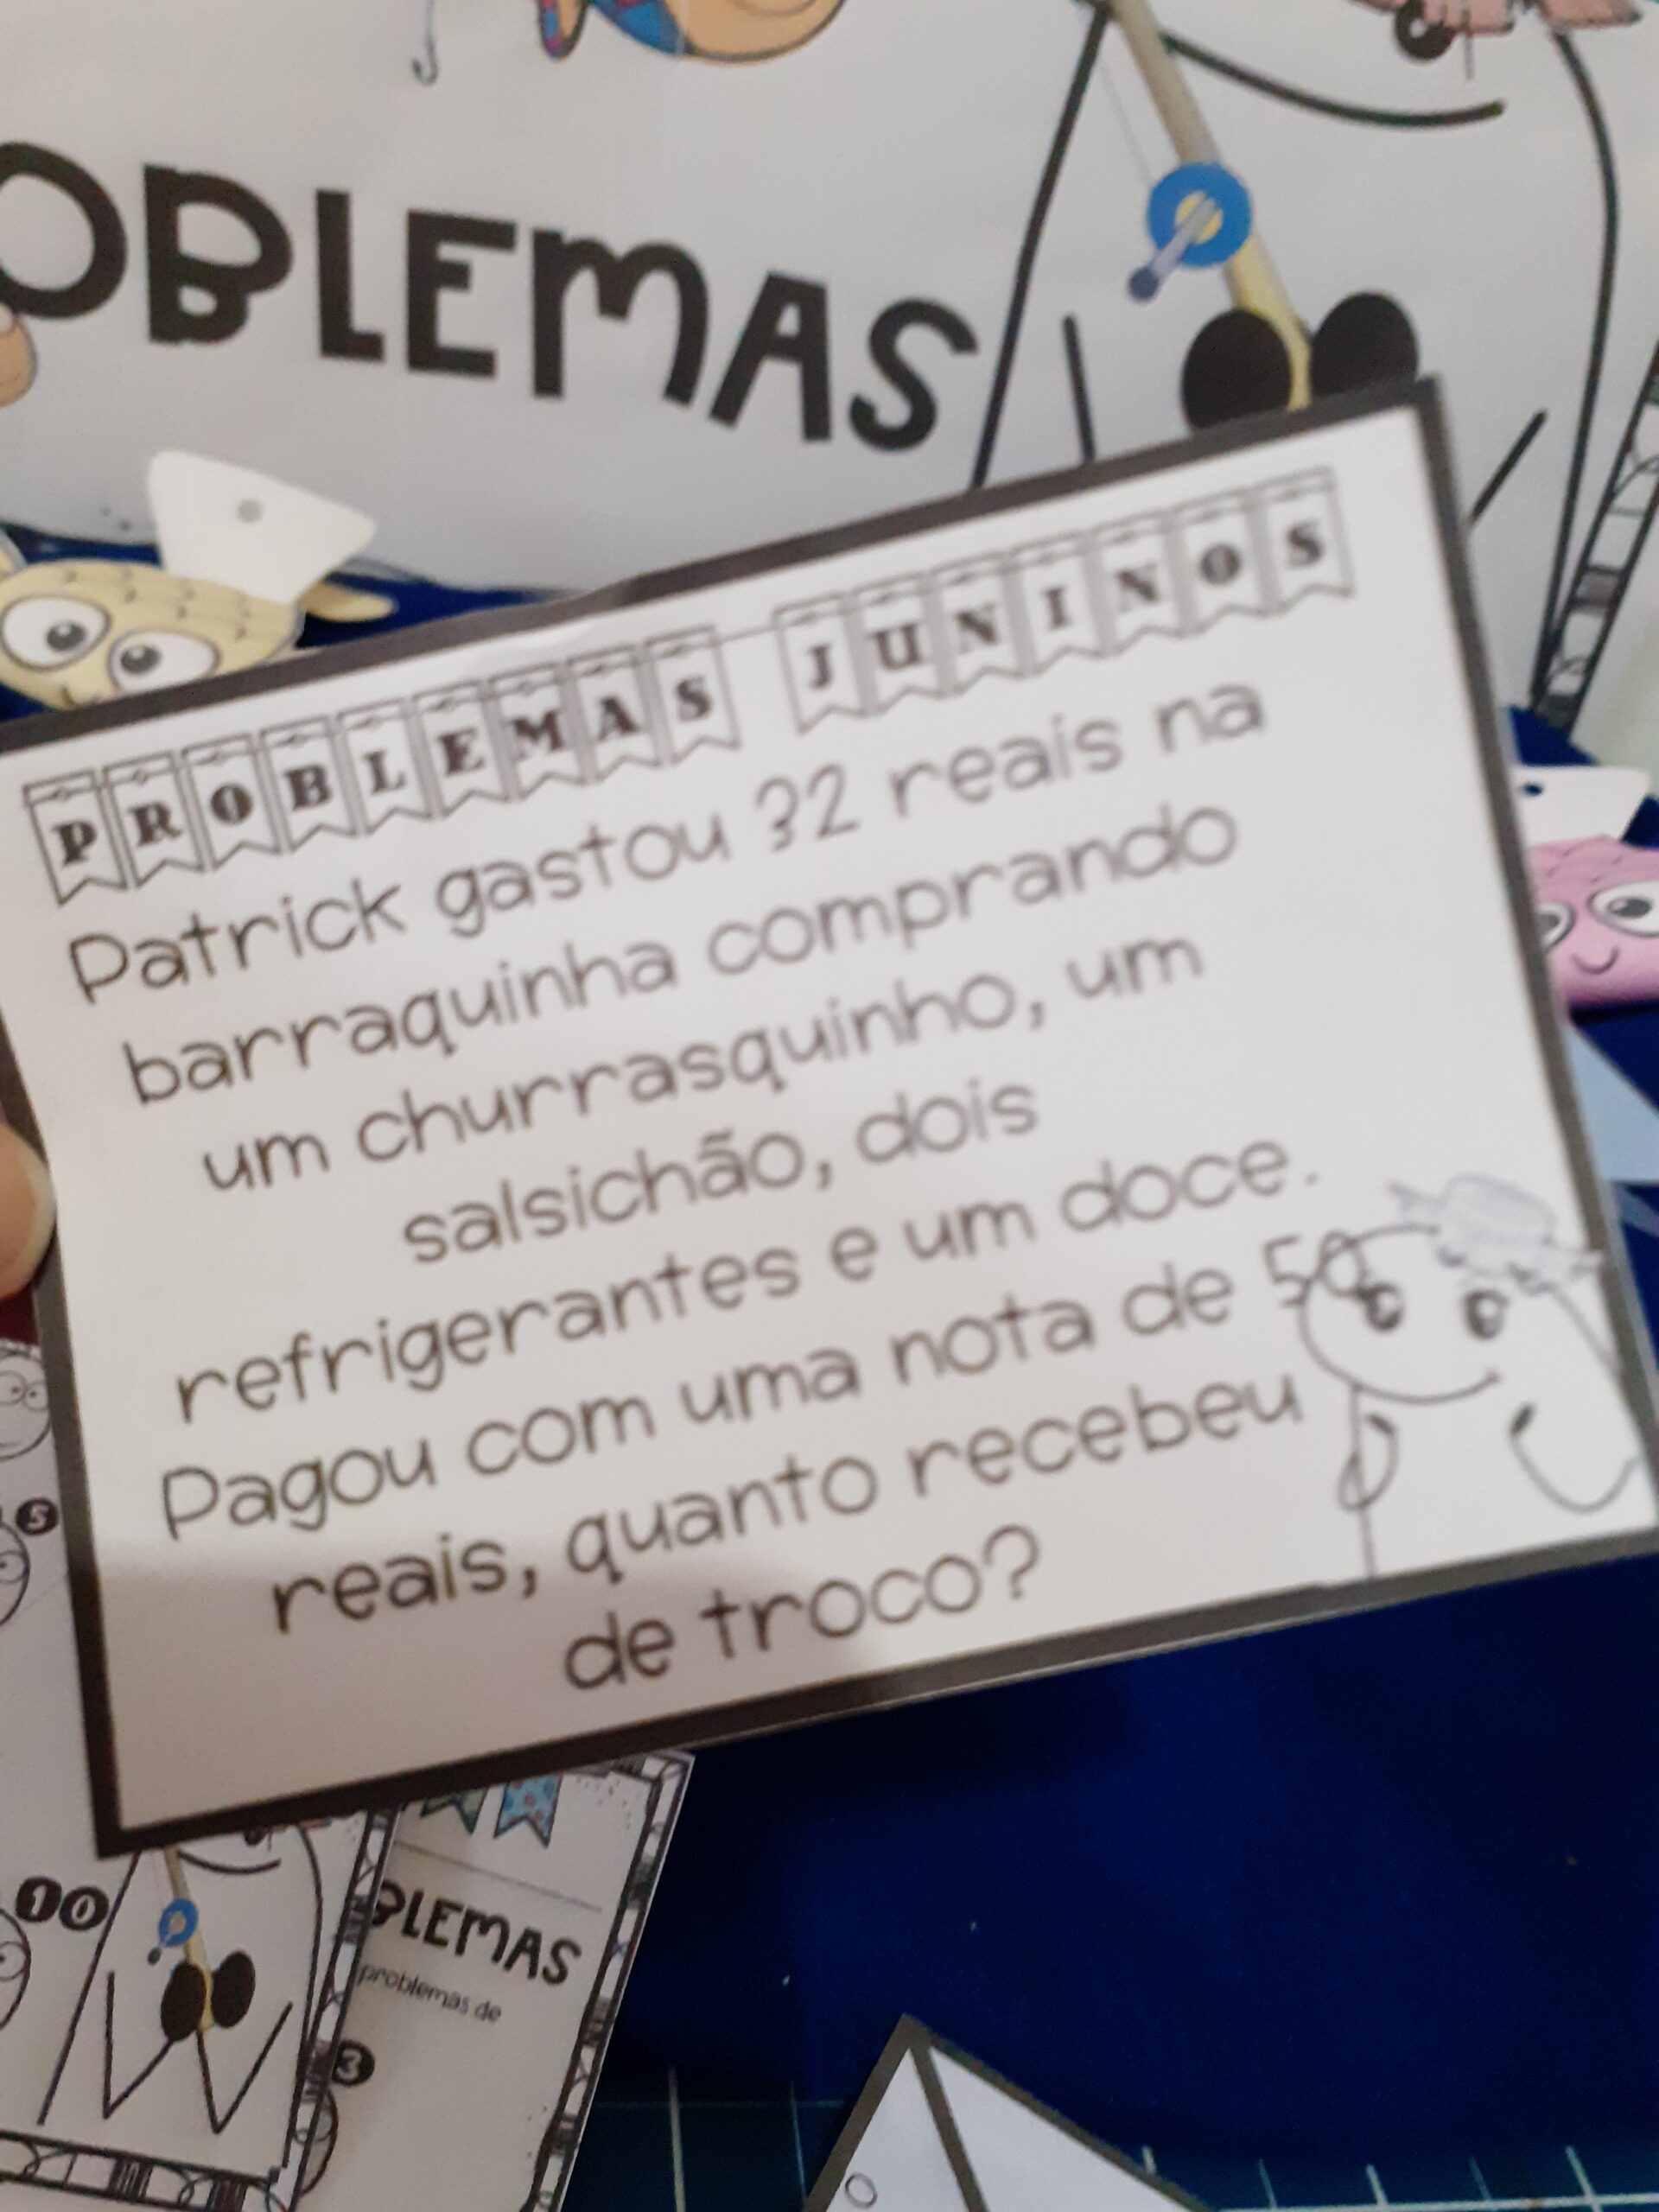 OBLEMAS
PROBLEMAS JUNINOS
Patrick gastou 32 reais na
barraquinha comprando
um churrasquinho, um
salsichão, dois
refrigerantes e um doce.
Pagou com uma nota de 50
reais, quanto recebeu
de troco?
5
10
BLEMAS
problemas de
3